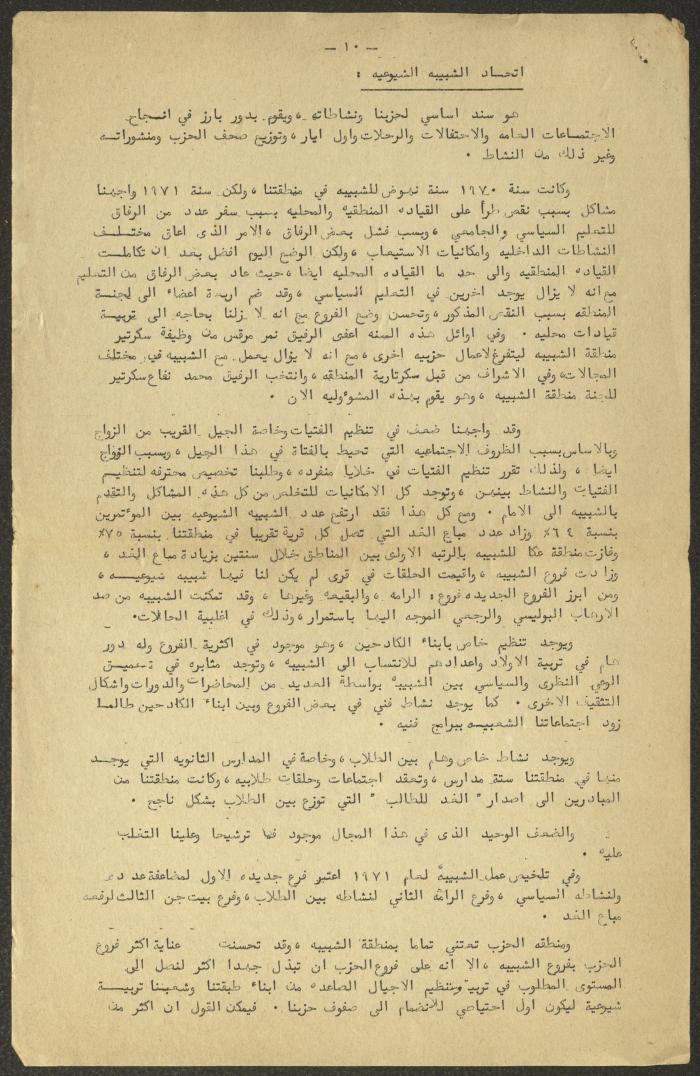 - ١٠ -
اتحساد الشبيبه الشيوعيه :
هو سند اساسي لحزبنا ونشاطاته ، ويقوم بدور بارز في انـجاح
الاجتماعات العامه والاحتفالات والرحلات واول ايار ، وتوزيع صحف الحزب ومنشوراتـه
وغير ذلك من النشاط ٠
وكانت سنة ١٩٧٠ سنة نهوض للشبيبه في منطقتنا ، ولكن سنة ١٩٧١ واجهنا
مشاكل بسبب نقص طرأ على القياده المنطقيه والمحليه بسبب سفر عدد من الرفاق
للتعليم السياسي والجامعي ، وبسب فشل بعض الرفاق ، الامر الذى اعاق مختـلـف
النشاطات الداخليه وامكانيات الاستيعاب ، ولكن الوضع اليوم افضل بعد ان تكاملـت
القياده المنطقيه والى حد ما القياده المحليه ايضا ، حيث عاد بعض الرفاق من التعليم
مع انه لا يزال يوجد اخرين في التعليم السياسي ، وقد ضم اربعة اعضاء الى لجنـة
المنطقه بسبب النقص المذكور ، وتحسن وضع الفروع مع انه لا زلنا بحاجه الى تربيـة
قيادات محليه ٠ وفي اوائل هذه السنه اعفى الرفيق نمر مرقس من وظيفة سكرتير
منطقة الشبيبه ليتفرغ لاعمال حزبيه اخرى ، مع انه لا يزال يعمل مع الشبيبه في مختلف
المجالات ، وفي الاشراف من قبل سكرتارية المنطقه ، وانتخب الرفيق محمد نفاع سكرتير
للجنة منطقة الشبيبه ، وهو يقوم بهذه المسؤوليه الان ٠
وقد واجهنا ضعف في تنظيم الفتيات وخاصة الجيل القريب من الزواج
وبالاساس بسبب الظروف الاجتماعيه التي تحيط بالفتاة في هذا الجيل ، وبسبب الزواج
ايضا ، ولذلك تقرر تنظيم الفتيات في خلايا منفرده ، وطلبنا تخصيص محترفه لتنظيـم
الفتيات والنشاط بينهن ، وتوجد كل الامكانيات للتخلص من كل هذه المشاكل والتقدم
بالشبيبه الى الامام ٠ ومع كل هذا فقد ارتفع عدد الشبيبه الشيوعيه بين المؤتمرين
بنسبة ٦٤٪ وزاد عدد مباع الغد التي تصل كل قرية تقريبا في منطقتنا بنسبة ٧٥٪
وفازت منطقة عكا للشبيبه بالرتبه الاولى بين المناطق خلال سنتين بزيادة مباع الغد ،
وزادت فروع الشبيبه ، واقيمت الحلقات في قرى لم يكن لنا فيها شبيبه شيوعيـــه ،
ومن ابرز الفروع الجديده فروع : الرامه ، والبقيعه وغيرها ، وقد تمكنت الشبيبه من صد
الارهاب البوليسي والرجعي الموجه اليها باستمرار ، وذلك في اغلبية الحالات٠
ويوجد تنظيم خاص بابناء الكادحين ، وهو موجود في اكثرية الفروع وله دور
هام في تربية الاولاد واعدادهم للانتساب الى الشبيبه ، وتوجد مثابره في تعميـق
الوعي النظرى والسياسي بين الشبيبه بواسطة العديد من المحاضرات والدورات واشكال
التثقيف الاخرى ٠ كما يوجد نشاط فني في بعض الفروع وبين ابناء الكادحين طالمـا
زود اجتماعاتنا الشعبيـه ببرامج فنيه ٠
ويوجد نشاط خاص وهام بين الطلاب ، وخاصة في المدارس الثانويه التي يوجـد
منها في منطقتنا ستة مدارس ، وتعقد اجتماعات وحلقات طلابيه ، وكانت منطقتنا من
المبادرين الى اصدار " الغد للطالب " التي توزع بين الطلاب بشكل ناجح ٠
والضعف الوحيد الذى في هذا المجال موجود في ترشيحا وعلينا التغلب
عليه ٠
وفي تلخيص عمل الشبيبه لعام ١٩٧١ اعتبر فرع جديده الاول لمضاعفة عدده
ولنشاطه السياسي ، وفرع الرامه الثاني لنشاطه بين الطلاب ، وفرع بيت جن الثالث لرفعه
مباع الغد ٠
ومنطقه الحزب تعتني تماما بمنطقة الشبيبه ، وقد تحسنت عناية اكثر فروع
الحزب بفروع الشبيبه ، الا انه على فروع الحزب ان تبذل جهدا اكثر لنصل الى
المستوى المطلوب في تربية وتنظيم الاجيال الصاعده من ابناء طبقتنا وشعبنا تربيــة
شيوعية ليكون اول احتياطي للانضمام الى صفوف حزبنا ٠ فيمكن القول ان اكثر من